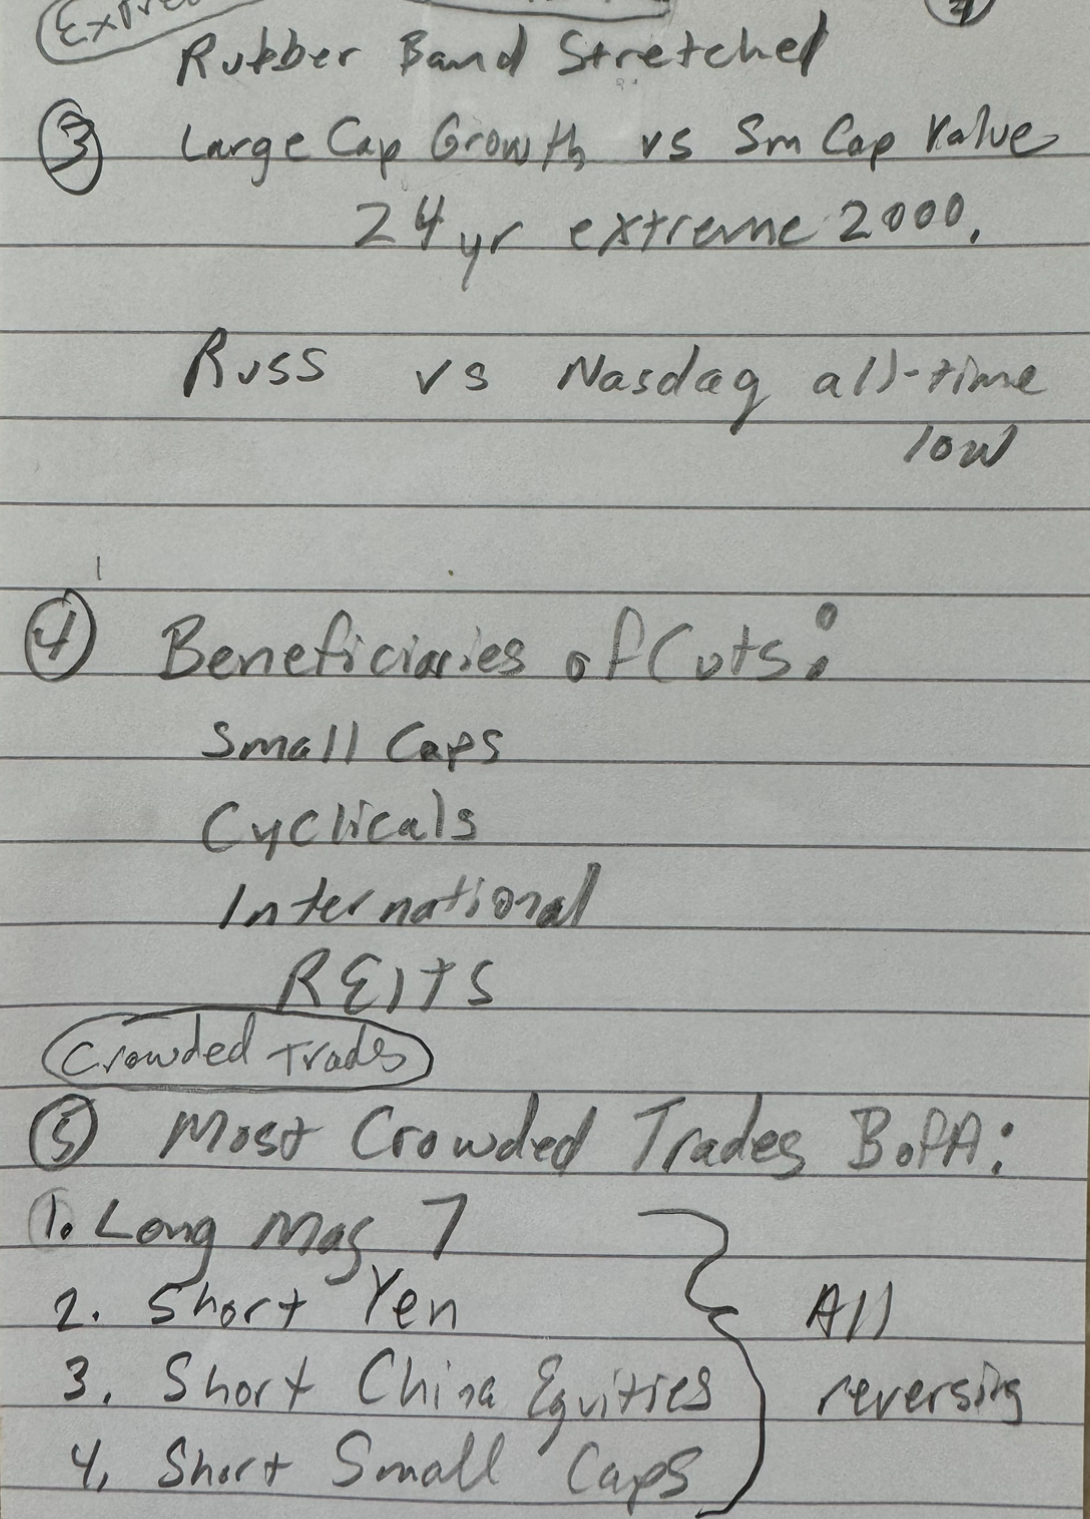 Rubber Band Stretched
③ Large Cap Growth vs Sm Cap Value
24yr extreme 2000.
Russ vs Nasdaq all-time
low
④ Beneficiaries of Cuts:
Small Caps
Cyclicals
International
REITS
Crowded Trades
⑤ Most Crowded Trades BofA:
1. Long Mag 7
2. Short Yen
3. Short China Equities
4. Short Small Caps
All
reversing